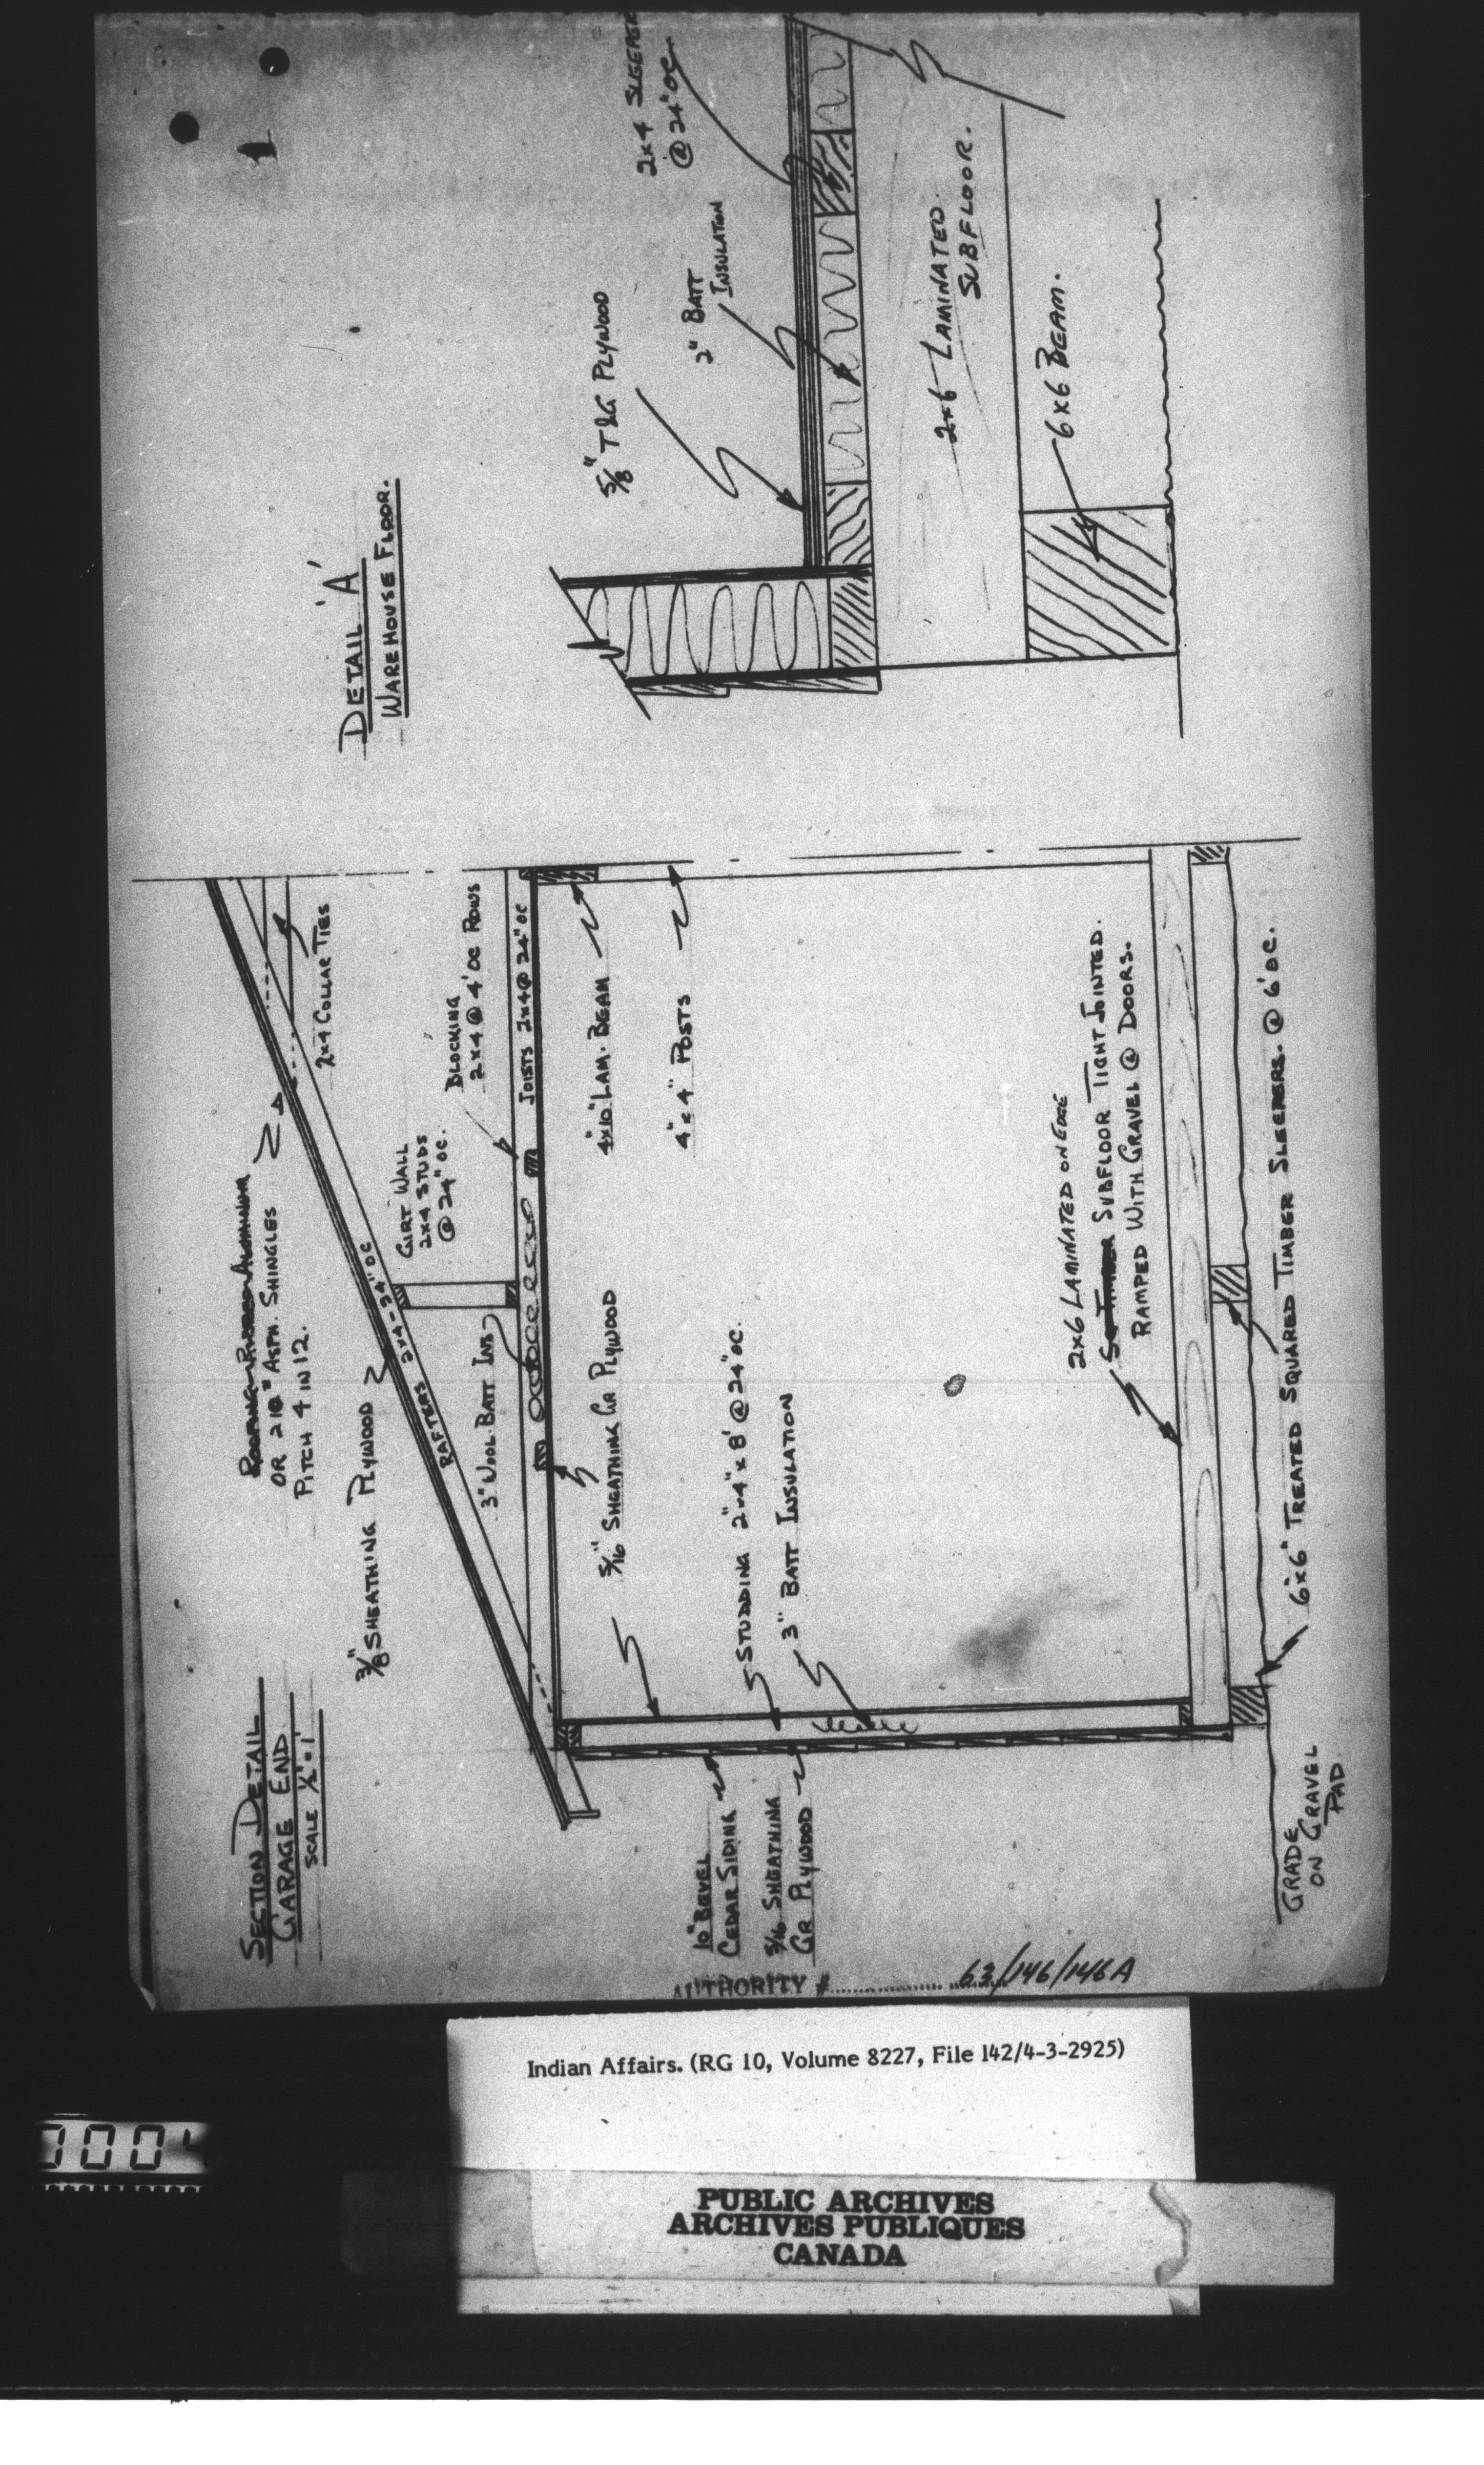 SECTION DETAIL
GARAGE END
SCALE ½"=1'
ROOFING RIBBED ALUMINUM
OR 210# ASPH. SHINGLES
PITCH 4 IN 12.
3/8" SHEATHING PLYWOOD
RAFTERS 2x4-24" OC
2x4 COLLAR TIES
GIRT WALL
2x4 STUDS
@ 24" OC.
BLOCKING
2x4 @ 4' OC ROWS
JOISTS 2x4 @ 24" OC
3" WOOL BATT INS
5/16" SHEATHING GR PLYWOOD
4"x10" LAM. BEAM
4"x4" POSTS
STUDDING 2"x4"x8' @ 24" OC.
3" BATT INSULATION
10" BEVEL
CEDAR SIDING
5/16 SHEATHING
GR PLYWOOD
2x6 LAMINATED ON EDGE
SQ TIMBER SUBFLOOR TIGHT JOINTED.
RAMPED WITH GRAVEL @ DOORS.
6"x6" TREATED SQUARED TIMBER SLEEPERS. @ 6' OC.
GRADE
ON GRAVEL
PAD
DETAIL 'A'
WAREHOUSE FLOOR.
5/8" T&G PLYWOOD
2" BATT
INSULATION
2x4 SLEEPER
@ 24" OC
2x6 LAMINATED
SUBFLOOR.
6x6 BEAM.
1
AUTHORITY # 63/146/146A
Indian Affairs. (RG 10, Volume 8227, File 142/4-3-2925)
PUBLIC ARCHIVES
ARCHIVES PUBLIQUES
CANADA